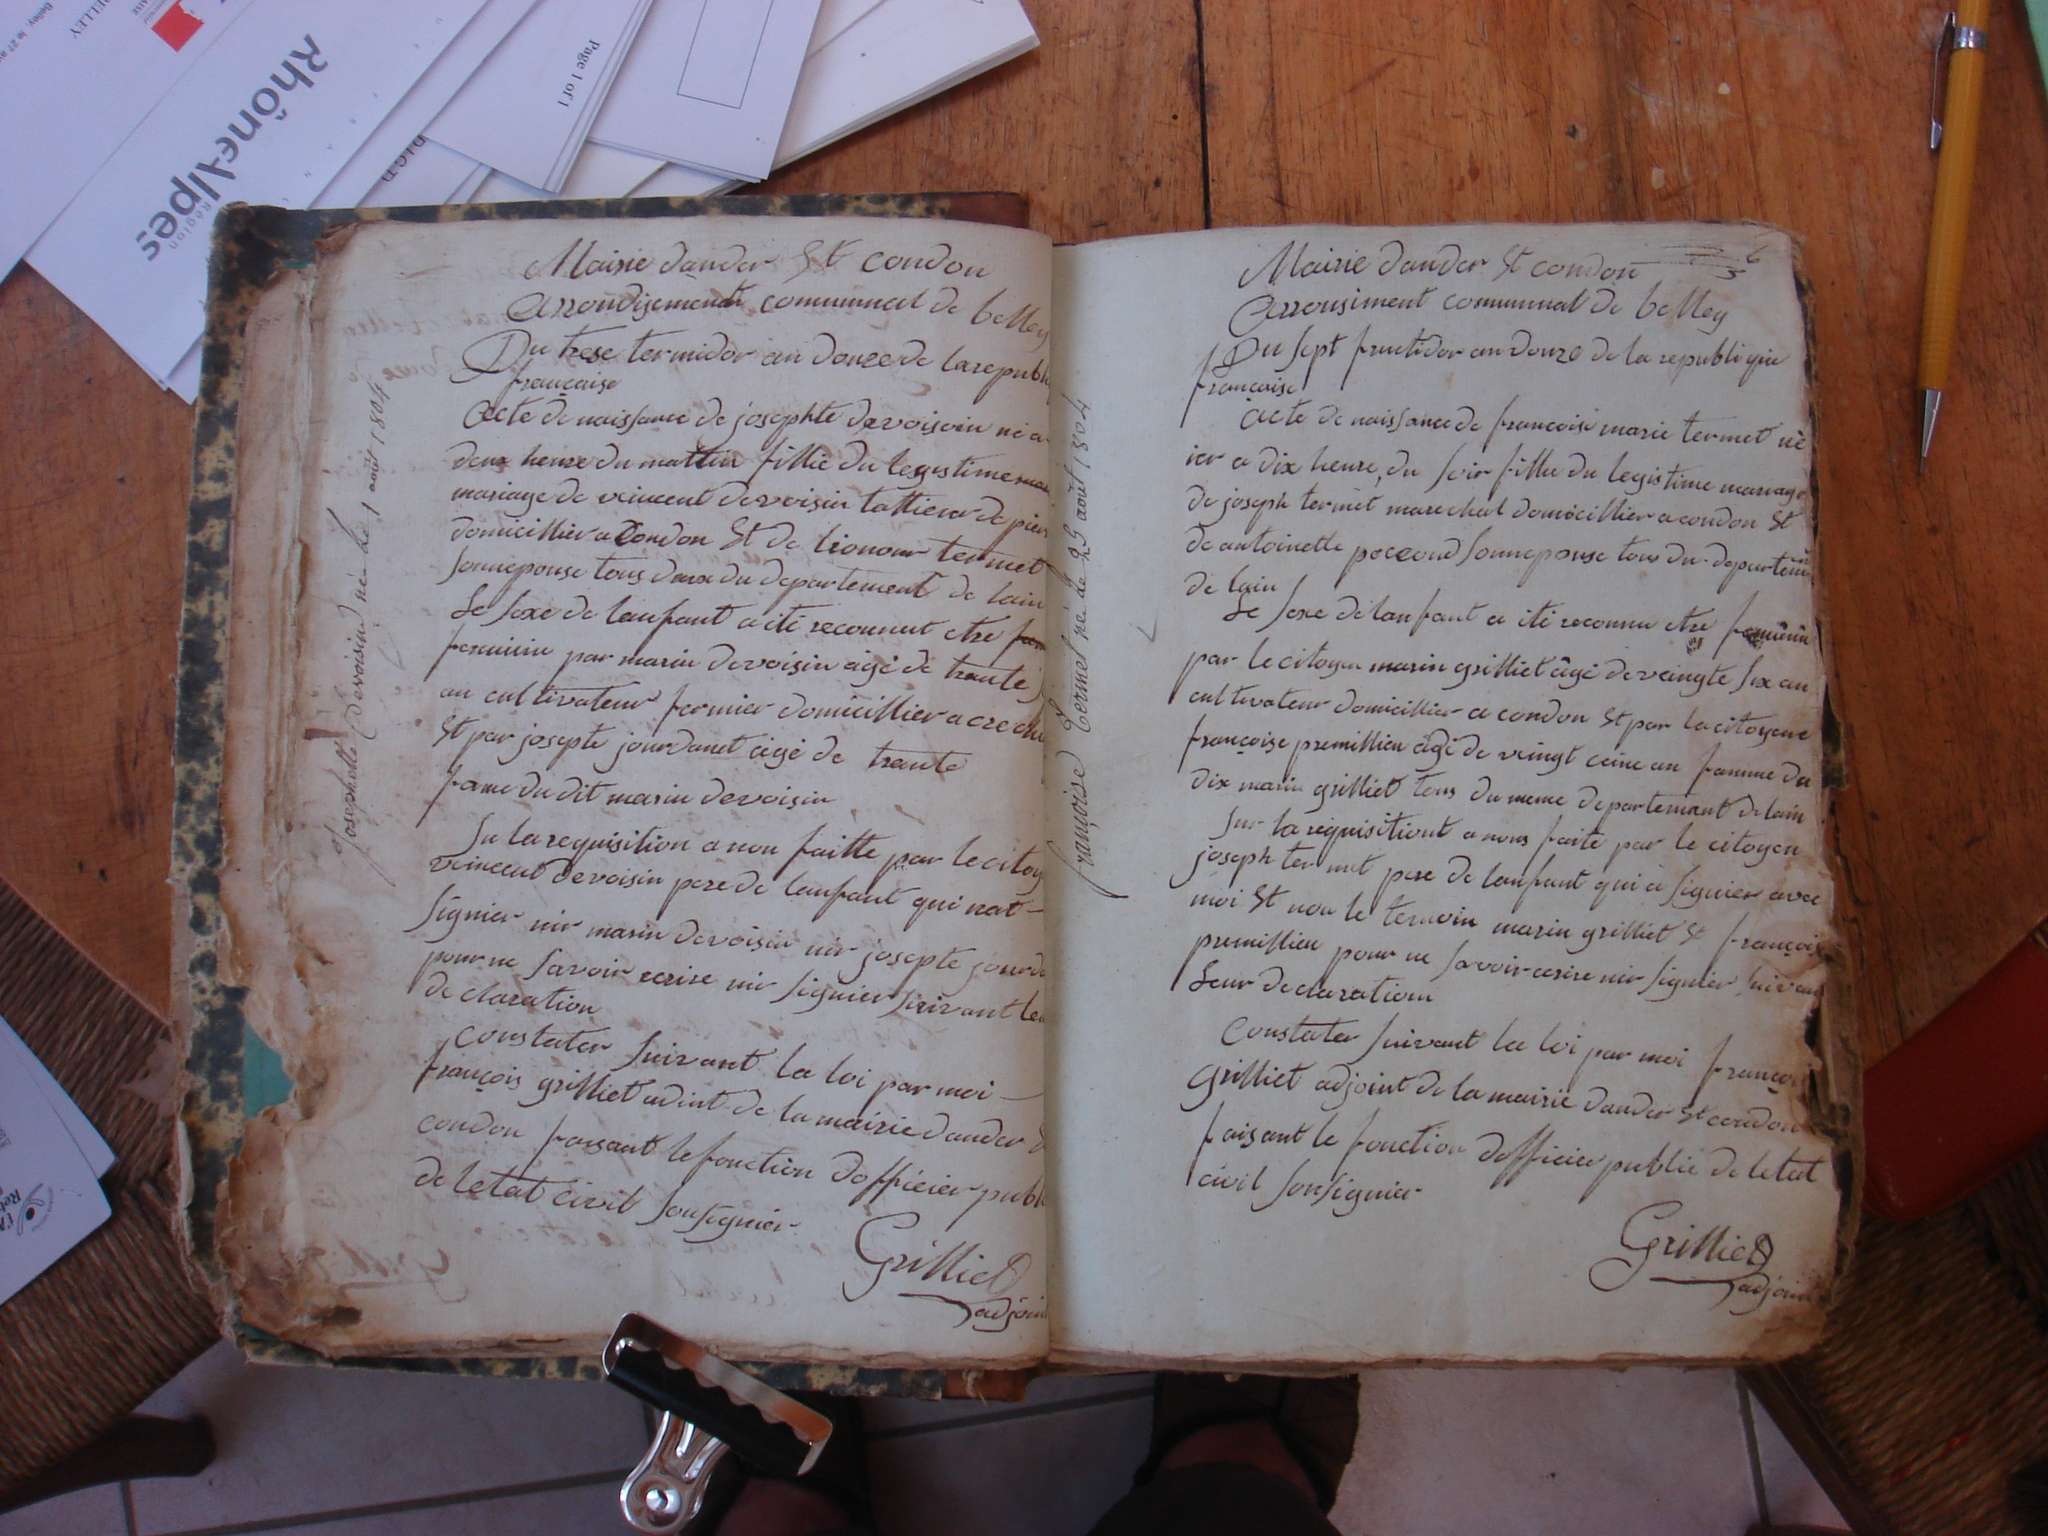 RhôneAlpes
Région
Page 1 of 1
Mairie dander St condon
Arrondisement communal de belley
Du trese termidor an douze de la republi
francaise
Acte de naissance de josephte devoisin né a
deux heure du mattin fillie du legistime
mariage de veincent devoisin tallieur de pier
domicillier a Condon St de lionour termet
sonnepouse tous deux du departement de lain
Le sexe de lanfant a ité reconnut etre
feminin par marin devoisin âgé de trante
an cultivateur fermier domicillier a
St par josepte jourdanet âgé de trante
fame du dit marin devoisin
Su la requisition a nou faitte par le citoy
veincent devoisin pere de lanfant qui nat
signier nir marin devoisin nir josepte jourda
pour ne savoir ecrise nir signier suivant leu
declaration
Constater suivant la loi par moi
françois grilliet adint de la mairie dander S
condon faisant le fonction dofficier publi
de letat civil sousignier
Grilliet
adjoin
Josephette Devoisin née le 1 août 1804
Mairie dander St condon
6
Arrousiment communal de belley
Du sept fructidor an douze de la republiqui
françoise
Acte de naissance de francoise marie termet né
ier a dix heure du soir fillie du legistime mariage
de joseph termet marechal domicillier a condon St
de antoinette poccond sonnepouse tous du departem
de lain
Le sexe de lanfant a ité reconnu etre feminin
par le citoyen marin grilliet âgé de veingte six an
cultivateur domicillier a condon St par la citoyene
françoise premillieu âgé de veingt cainc an famme du
dix marin grilliet tous du meme departemant de lain
Sur la requisitiont a nous faite par le citoyen
joseph termet pere de lanfant qui a signier avec
moi St non le temoin marin grilliet St françois
premillieu pour ne savoir ecrire nir signier suivan
leur declaration
Constater suivant la loi par moi françois
Grilliet adjoint de la mairie dander St condon
faisant le fonction dofficier public de letat
civil sousignier
Grilliet
adjoin
françoise Termet née le 25 août 1804